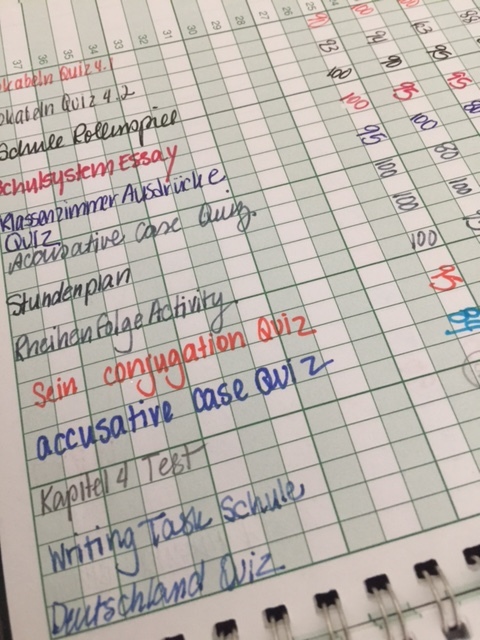 37 36 35 34 33 32 31 30 29 28 27 26 25 24
okabeln Quiz 4.1
okabeln Quiz 4.2
Schule Rollenspiel
chulsystem Essay
Klassenzimmer Ausdrücke
QUIZ
Accusative Case Quiz
Stundenplan
Rheihenfolge Activity
Sein conjugation Quiz
accusative case Quiz
Kapitel 4 Test
Writing Task Schule
Deutschland Quiz
93
100
100 95
95 100
100 80
100 100
100
95